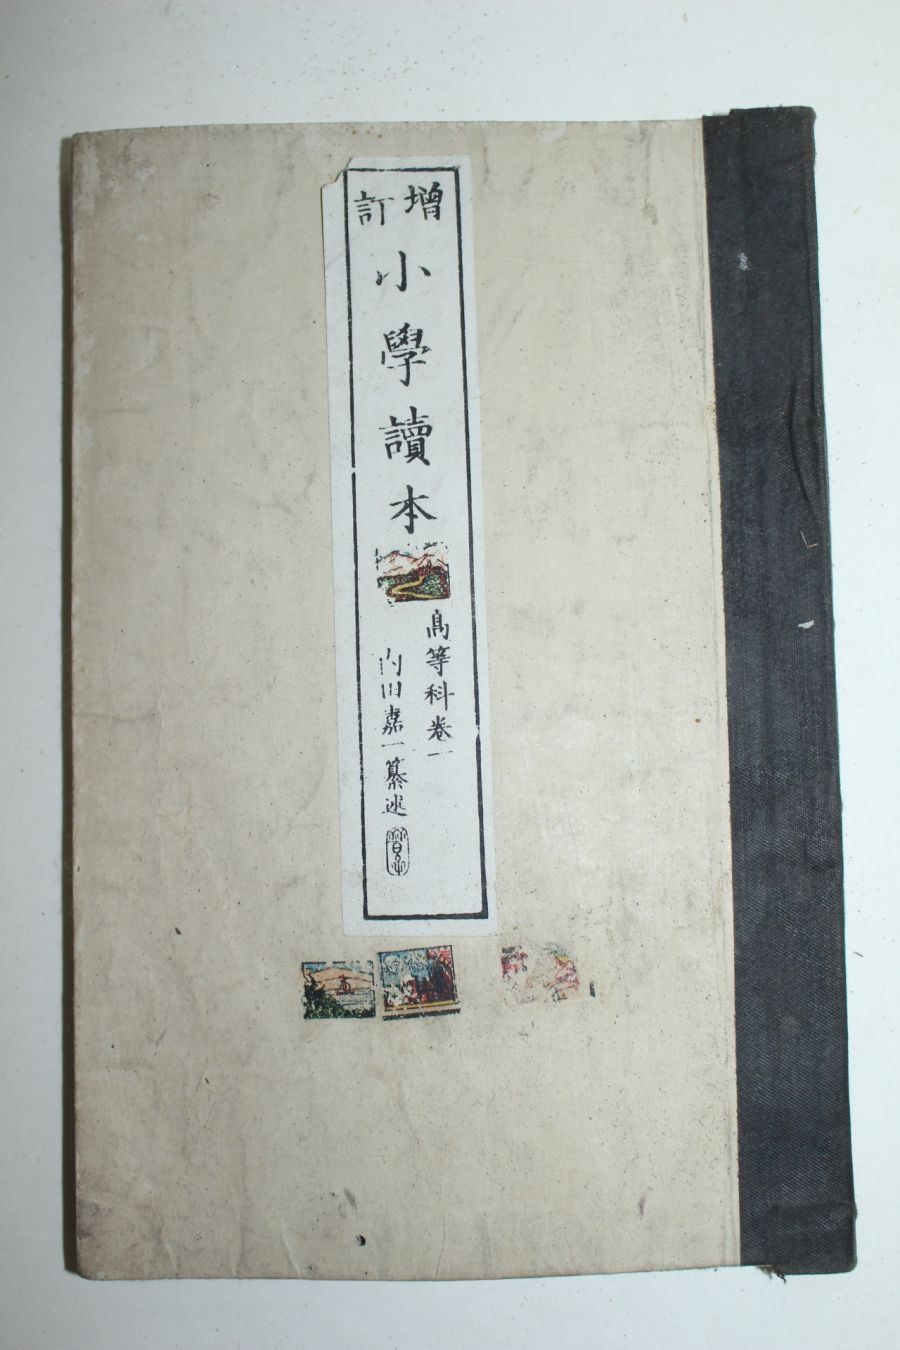 增訂
小學讀本
高等科卷一
內田嘉一纂述